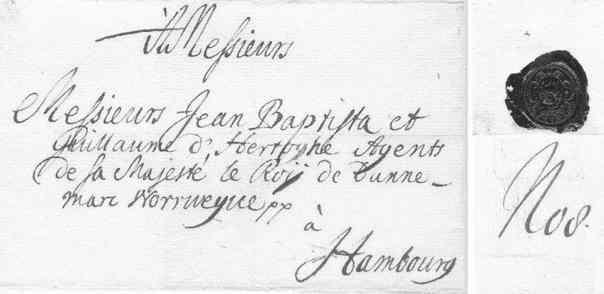 A Messieurs
Messieurs Jean Baptista et
Guillaume d'Hertoghe Agents
de sa Majesté le Roÿ de Danne-
marc Norrwegue pp
à
Hambourg
No 8.